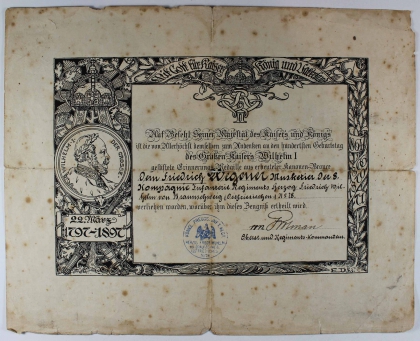 Mit Gott für Kaiser, König und Vaterland
WILHELM DER GROSSE
22. März
1797-1897
Auf Befehl Seiner Majestät des Kaisers und Königs
ist die von Allerhöchst demselben zum Andenken an den hundertsten Geburtstag
des Großen Kaisers Wilhelm I
gestiftete Erinnerungs-Medaille aus erbeuteter Kanonen-Bronze
Dem Friedrich Wigant Musketier der 8.
Kompagnie Infanterie Regiments Herzog Friedrich Wil-
helm von Braunschweig (Ostfriesisches) No. 78.
verliehen worden, worüber ihm dieses Zeugniß ertheilt wird.
Oberst und Regiments-Kommandeur.